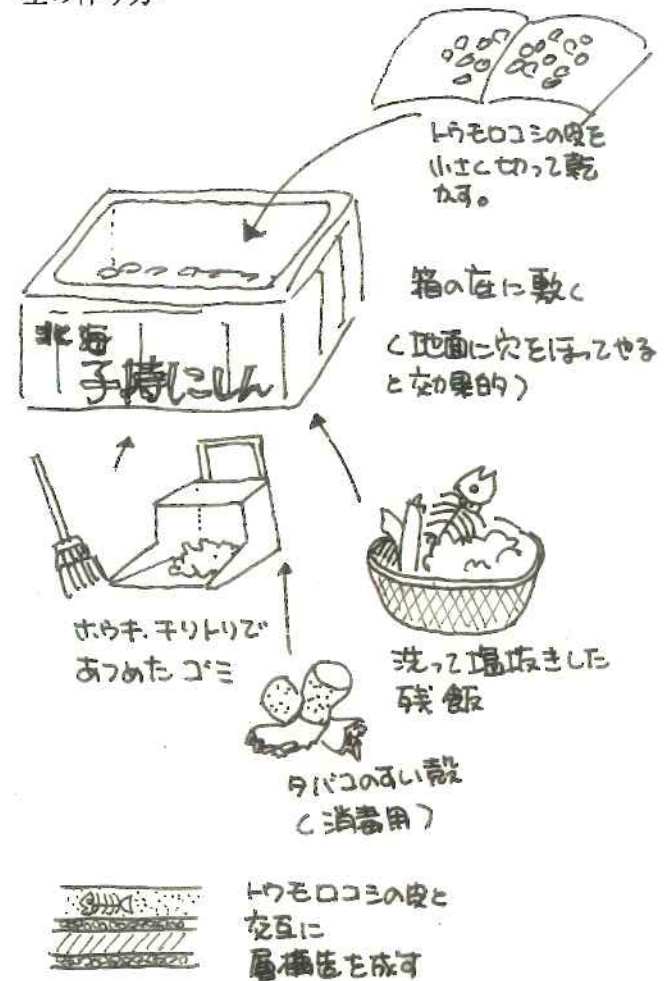 トウモロコシの皮を
小さく切って乾
かす。
箱の底に敷く
(地面に穴をほってやる
と効果的)
北海
子持にしん
ホウキ、チリトリで
あつめた ゴミ
洗って塩抜きした
残飯
タバコのすい殻
(消毒用)
トウモロコシの皮と
交互に
層構造を成す